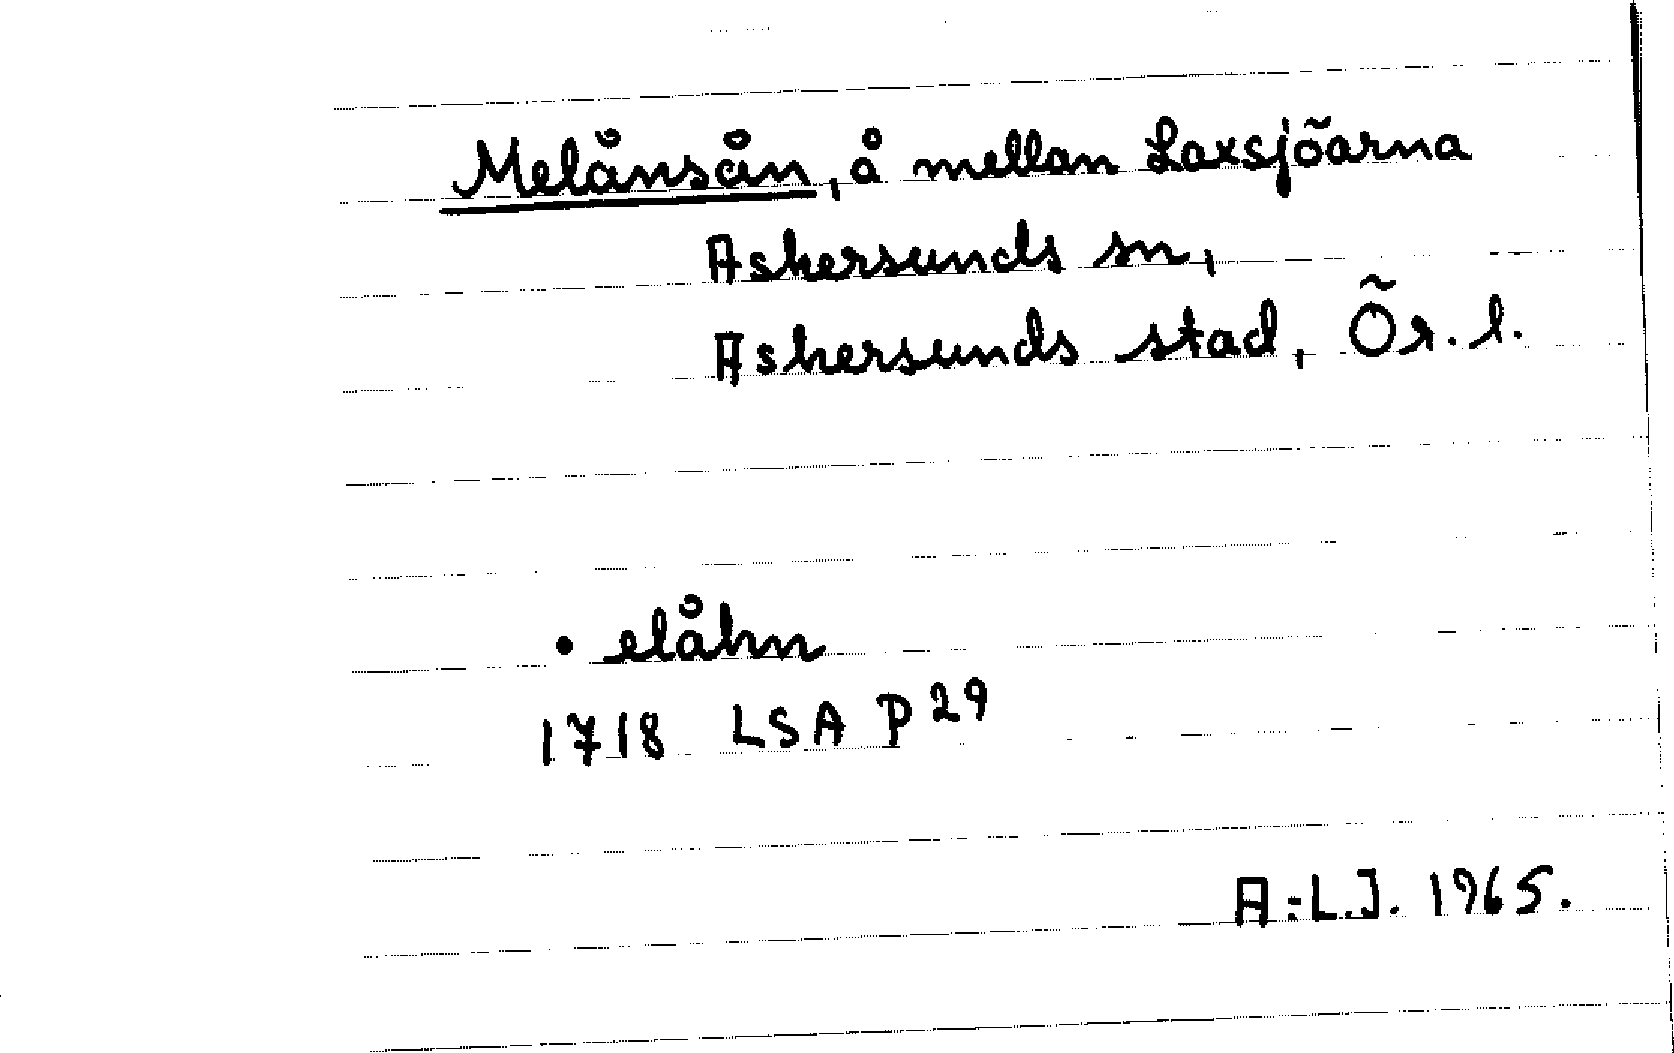 Melånsån, å mellan Laxsjöarna
Askersunds sn,
Askersunds stad, Ör. l.
• elåhn
1718 LSA P29
A:L.J. 1965.